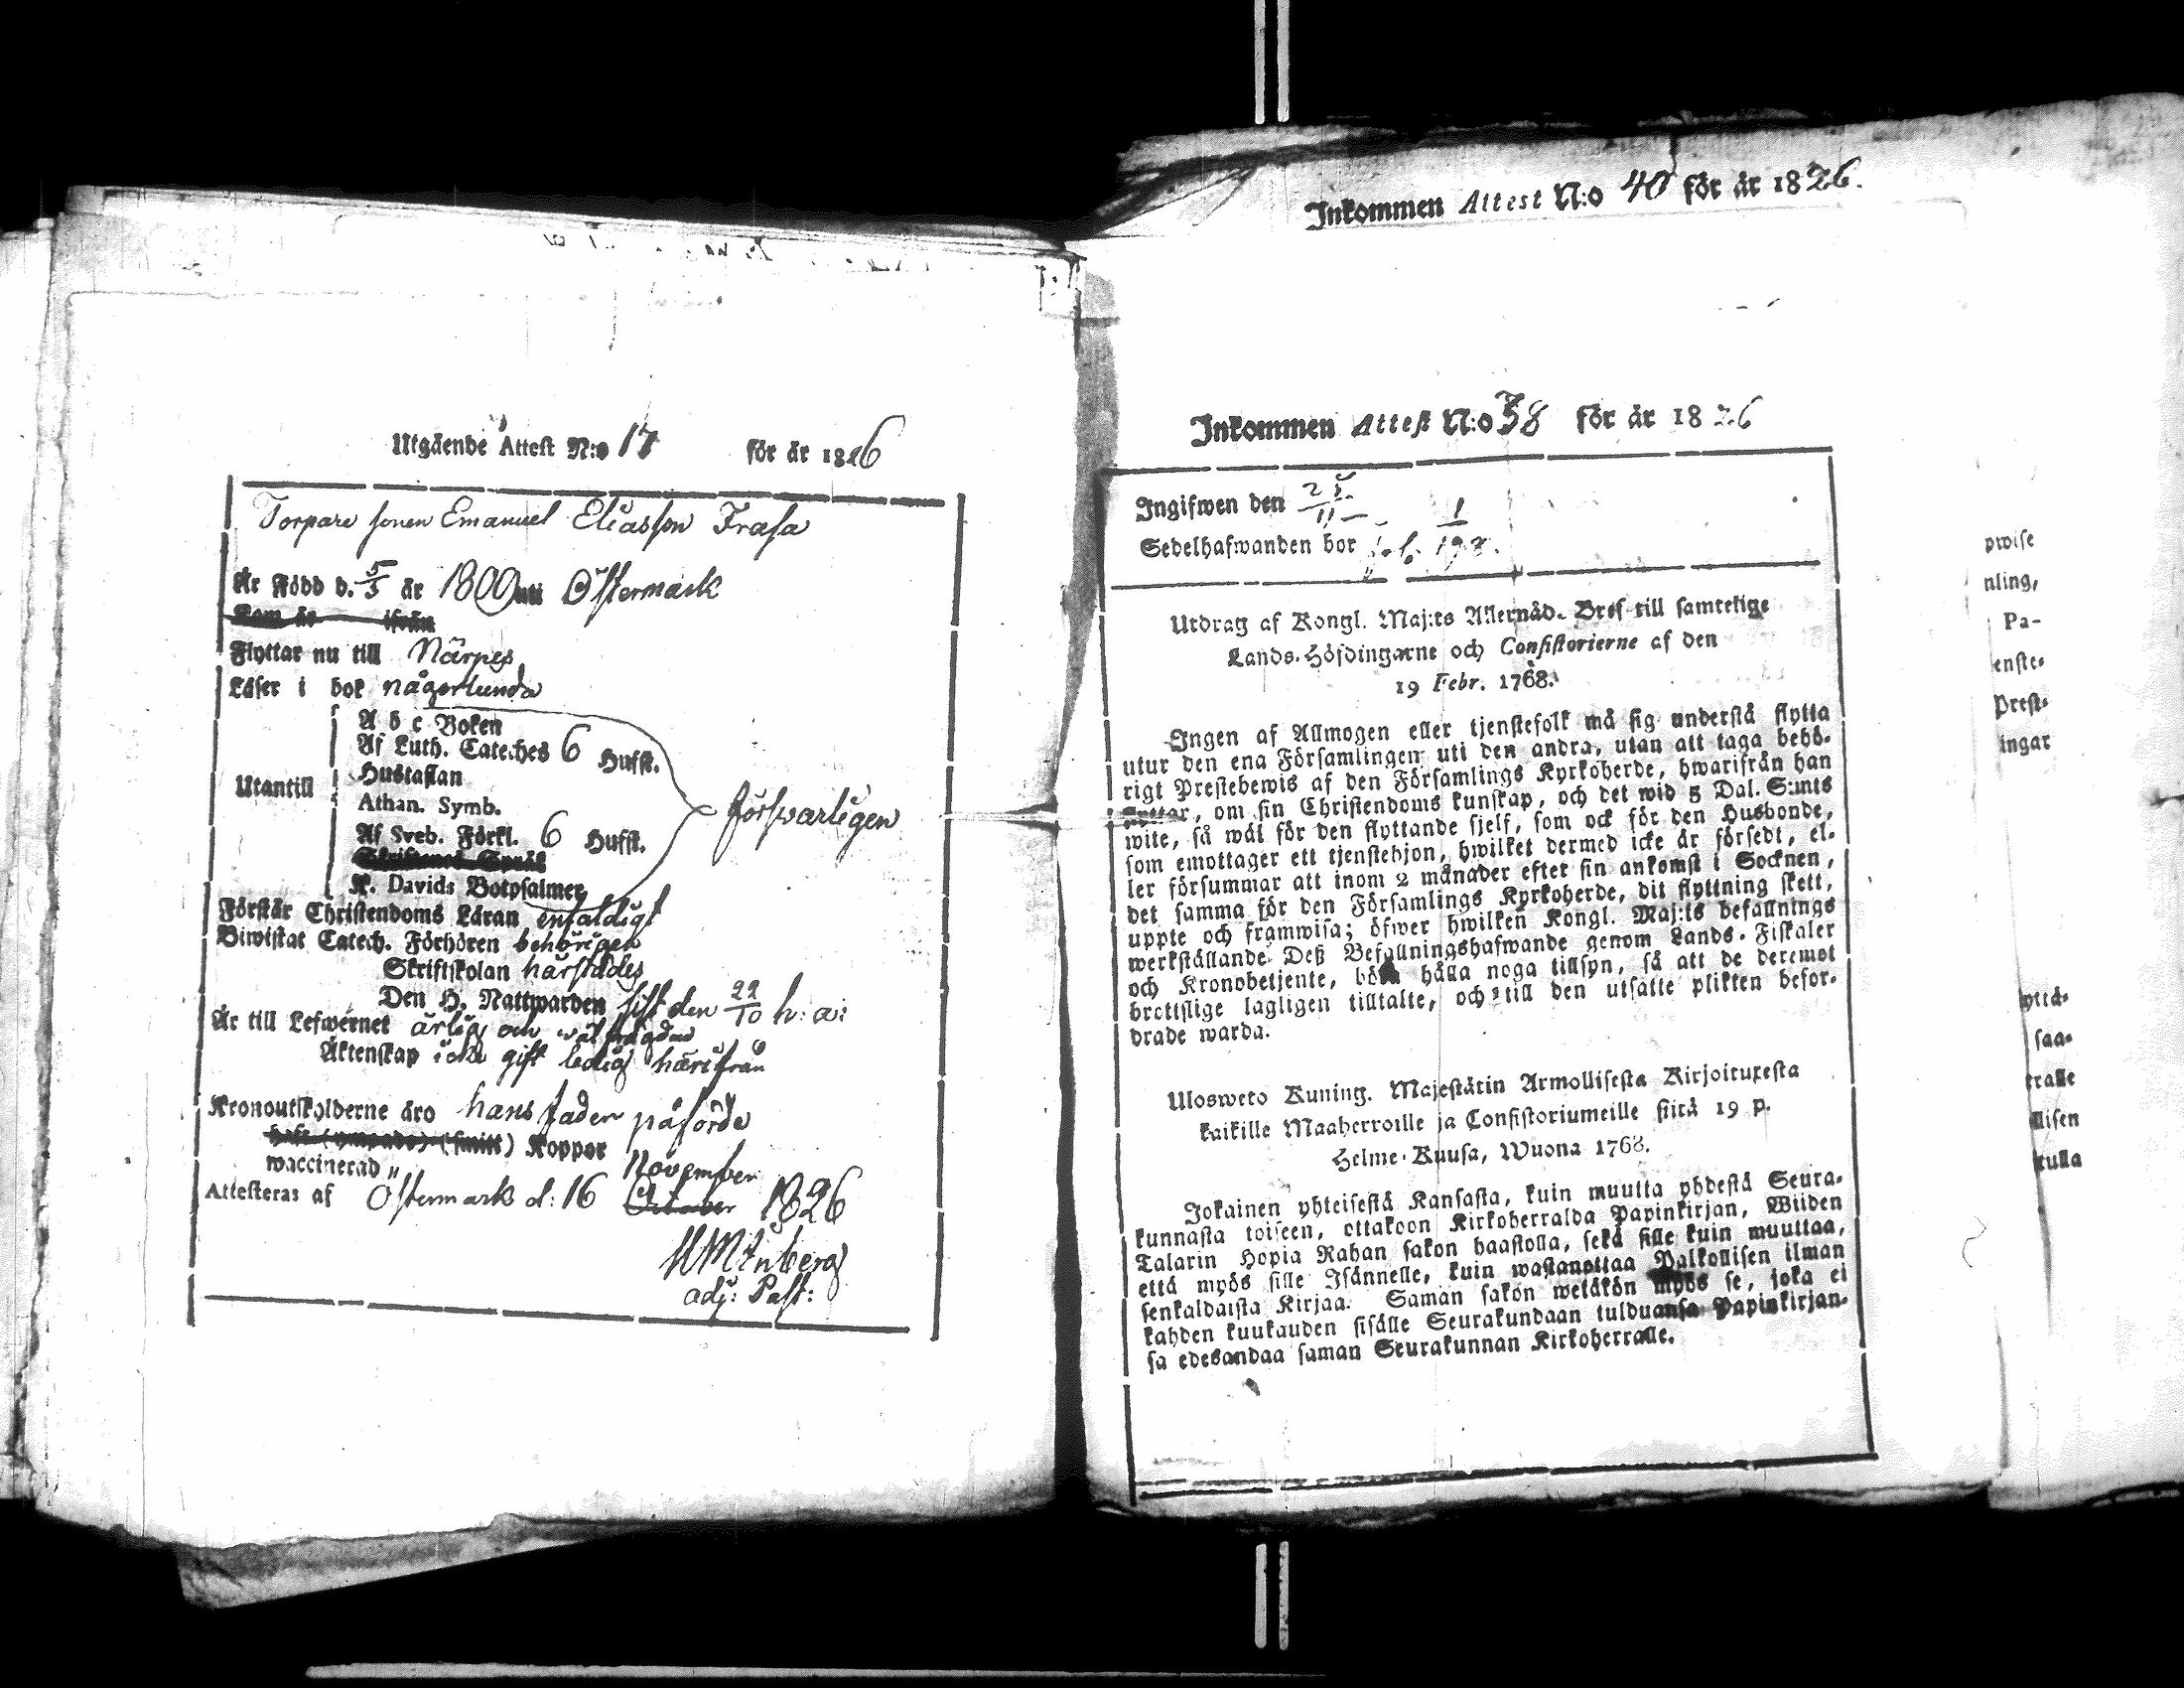 Utgående Attest N:o 17 för år 1826
Torpare sonen Emanuel Eliasson Frasa
Är Född d. 5/3 år 1800 uti Östermark
Kom år ifrån
Flyttar nu till Närpes
Läser i bok någorlunda
A b c Boken
Af Luth. Cateches 6 Hufst.
Hustaflan
Utantill
Athan. Symb.
försvarligen
Af Sveb. Förkl. 6 Hufst.
K. Davids Botpsalmer
Förstår Christendoms Läran enfaldigt
Biwistat Catech. Förhören behörigen
Skriftskolan härstädes
Den H. Nattwarden sist den 22/10 h: a:
Är till Lefwernet ärlig och wälfrägdad
Äktenskap icke gift ledig härifrån
Kronoutskylderne äro hans fader påförde
haft (ympade) (smitt) Koppor
waccinerad "
November
Attesteras af Östermark d: 16 October 1826
adj: Past:
Inkommen Attest N:o 40 för år 1826.
Inkommen Attest N:o 38 för år 1826
Ingifwen den
Sedelhafwanden bor
Utdrag af Kongl. Maj:ts Allernåd. Bref till samtelige
Lands-Höfdingarne och Consistorierne af den
19 Febr. 1768.
Ingen af Allmogen eller tjenstefolk må sig understå flytta
utur den ena Församlingen uti den andra, utan att taga behö-
rigt Prestebewis af den Församlings Kyrkoherde, hwarifrån han
flyttar, om sin Christendoms kunskap, och det wid 5 Dal. S:mts
wite, så wäl för den flyttande sjelf, som ock för den Husbonde,
som emottager ett tjenstehjon, hwilket dermed icke är försedt, el-
ler försummar att inom 2 månader efter sin ankomst i Socknen,
det samma för den Församlings Kyrkoherde, dit flyttning skett,
uppte och framwisa; öfwer hwilken Kongl. Maj:ts befallnings
werkställande Deß Befallningshafwande genom Lands-Fiskaler
och Kronobetjente, böra hålla noga tillsyn, så att de deremot
brottslige lagligen tilltalte, och till den utsatte plikten befor-
drade warda.
Ulosweto Kuning. Majestätin Armollisesta Kirjoituxesta
kaikille Maaherroille ja Consistoriumeille siitä 19 p.
Helme-Kuusa, Wuona 1768.
Jokainen yhteisestä Kansasta, kuin muutta yhdestä Seura-
kunnasta toiseen, ottakoon Kirkoherralda Papinkirjan, Wiiden
Talarin Hopia Rahan sakon haastolla, sekä sille kuin muuttaa,
että myös sille Isännelle, kuin wastanottaa Palkollisen ilman
senkaldaista Kirjaa. Saman sakon wetäkön myös se, joka ei
kahden kuukauden sisälle Seurakundaan tulduansa Papinkirjan-
sa edesandaa saman Seurakunnan Kirkoherralle.
pwise
nling,
Pa-
enste-
Prest-
ingar
yttä-
saa-
rralle
llisen
tulla